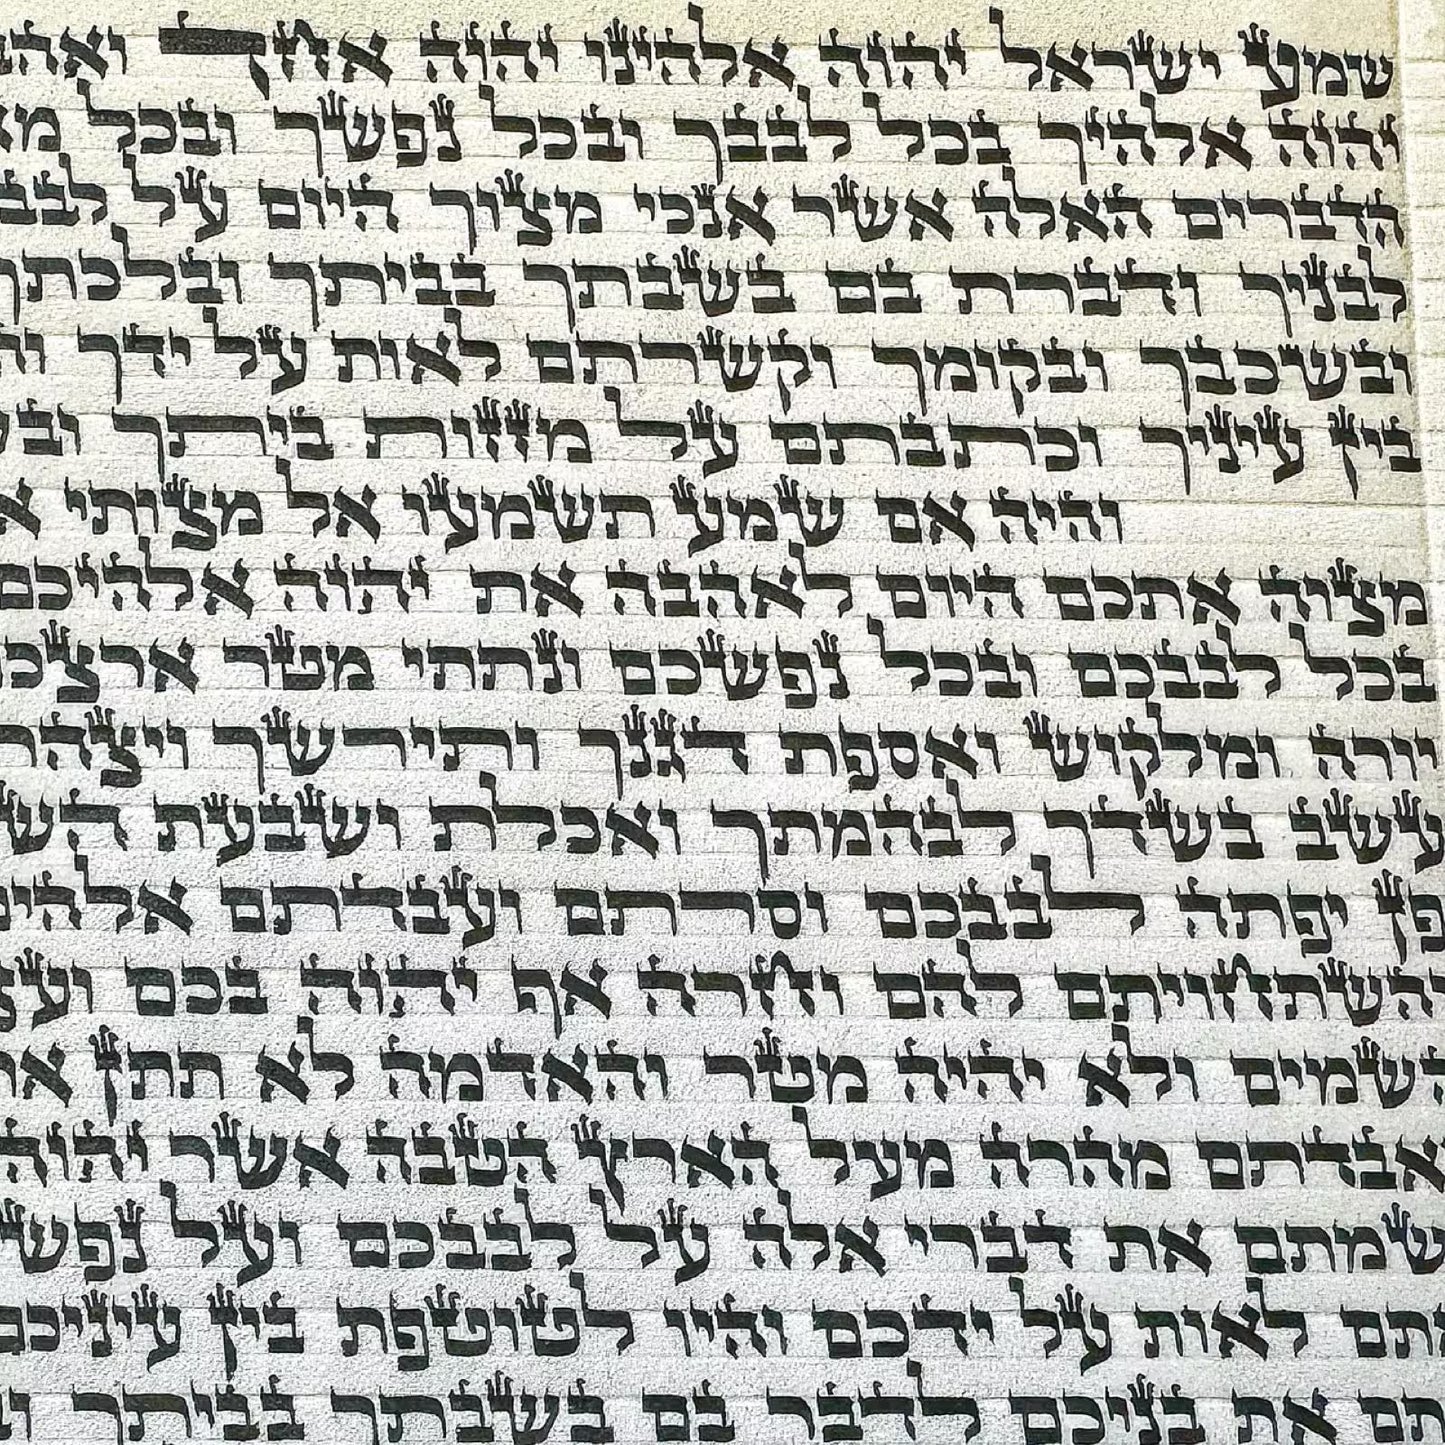 שמע ישראל יהוה אלהינו יהוה אחד ואהב
יהוה אלהיך בכל לבבך ובכל נפשך ובכל מא
הדברים האלה אשר אנכי מצוך היום על לבב
לבניך ודברת בם בשבתך בביתך ובלכתך
ובשכבך ובקומך וקשרתם לאות על ידך וה
בין עיניך וכתבתם על מזזות ביתך ובש
והיה אם שמע תשמעו אל מצותי א
מצוה אתכם היום לאהבה את יהוה אלהיכם
בכל לבבכם ובכל נפשכם ונתתי מטר ארצכ
יורה ומלקוש ואספת דגנך ותירשך ויצהר
עשב בשדך לבהמתך ואכלת ושבעת הש
פן יפתה לבבכם וסרתם ועבדתם אלהים
והשתחויתם להם וחרה אף יהוה בכם ועצ
השמים ולא יהיה מטר והאדמה לא תתן את
אבדתם מהרה מעל הארץ הטבה אשר יהוה
שמתם את דברי אלה על לבבכם ועל נפש
תם לאות על ידכם והיו לטוטפת בין עיניכם
תם את בניכם לדבר בם בשבתך בביתך וב